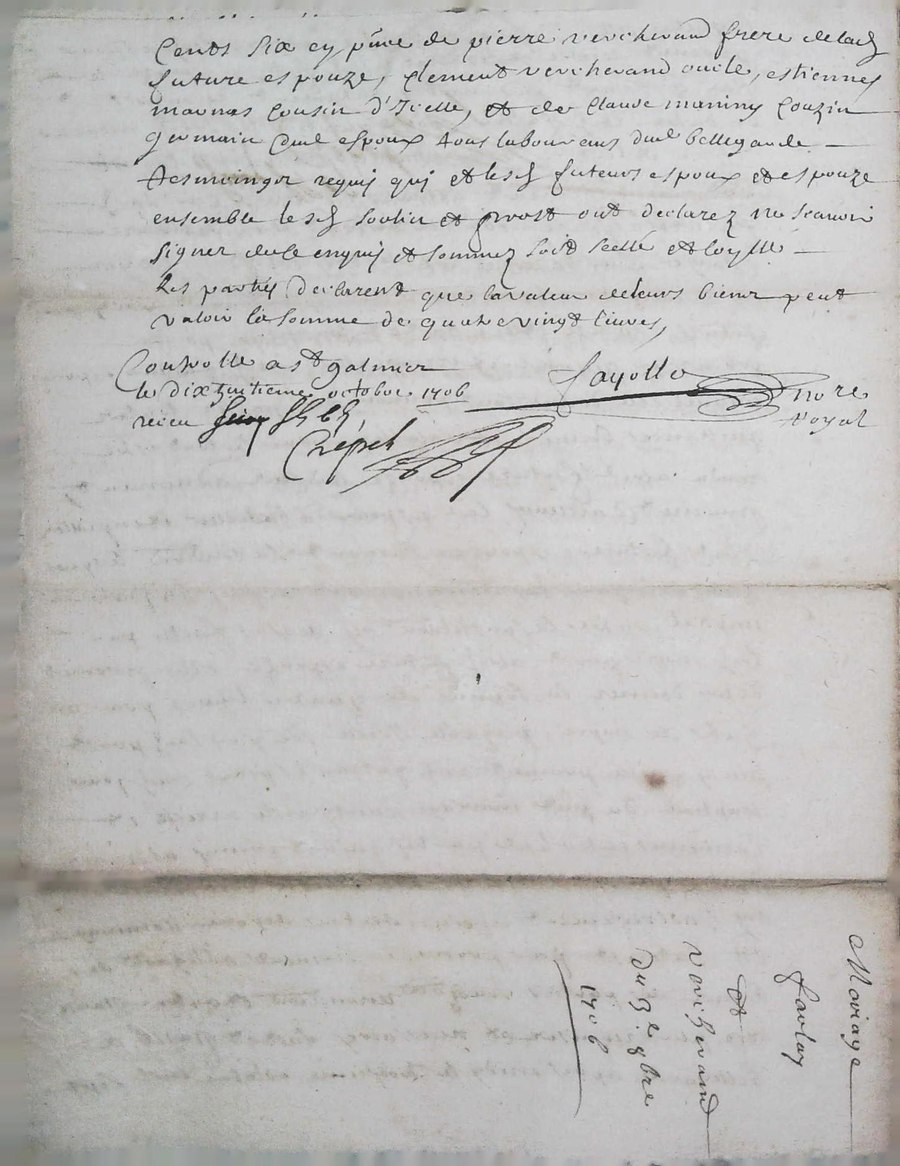 Cents six en pñce de pierre vercherand frere de lad
future espouze, Clement vercherand oncle, estienne
mounas Cousin d'Icelle, et de Claude maniny Couzin
germain dud espoux tous laboureurs dud bellegarde
tesmoings requis qui et lesd futeurs espoux et espouze
ensemble lesd et prost ont declarez ne scavoir
signer de ce enquis et sommez soit scellé et
les parties declarent que la valeur de leurs biens peut
valoir la somme de quatre vingt livres,
Controllé a st galmier
le dix huitieme octobre 1706
receu
Crépet
fayolle nore
Royal
Mariage
et
vercherand
du 3e 8bre
1706